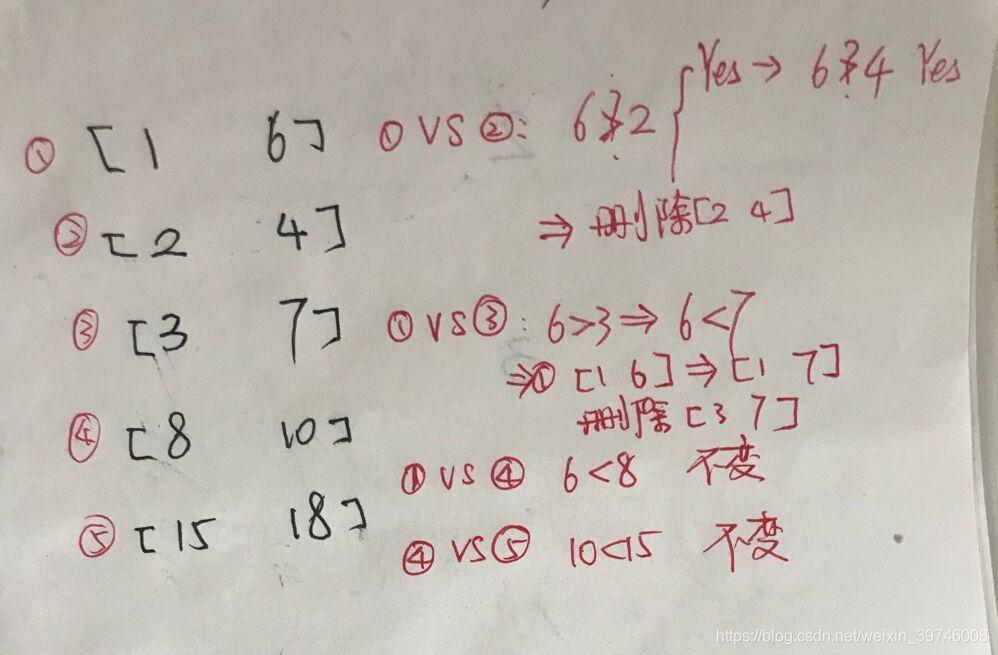 ① [1 6] ① VS ②: 6>2 Yes → 6>4 Yes
② [2 4] ⇒ 删除[2 4]
③ [3 7] ① VS ③: 6>3 ⇒ 6<7
⇒① [1 6] ⇒ [1 7]
删除 [3 7]
④ [8 10]
① VS ④ 6<8 不变
⑤ [15 18]
④ VS ⑤ 10<15 不变
https://blog.csdn.net/weixin_39746008